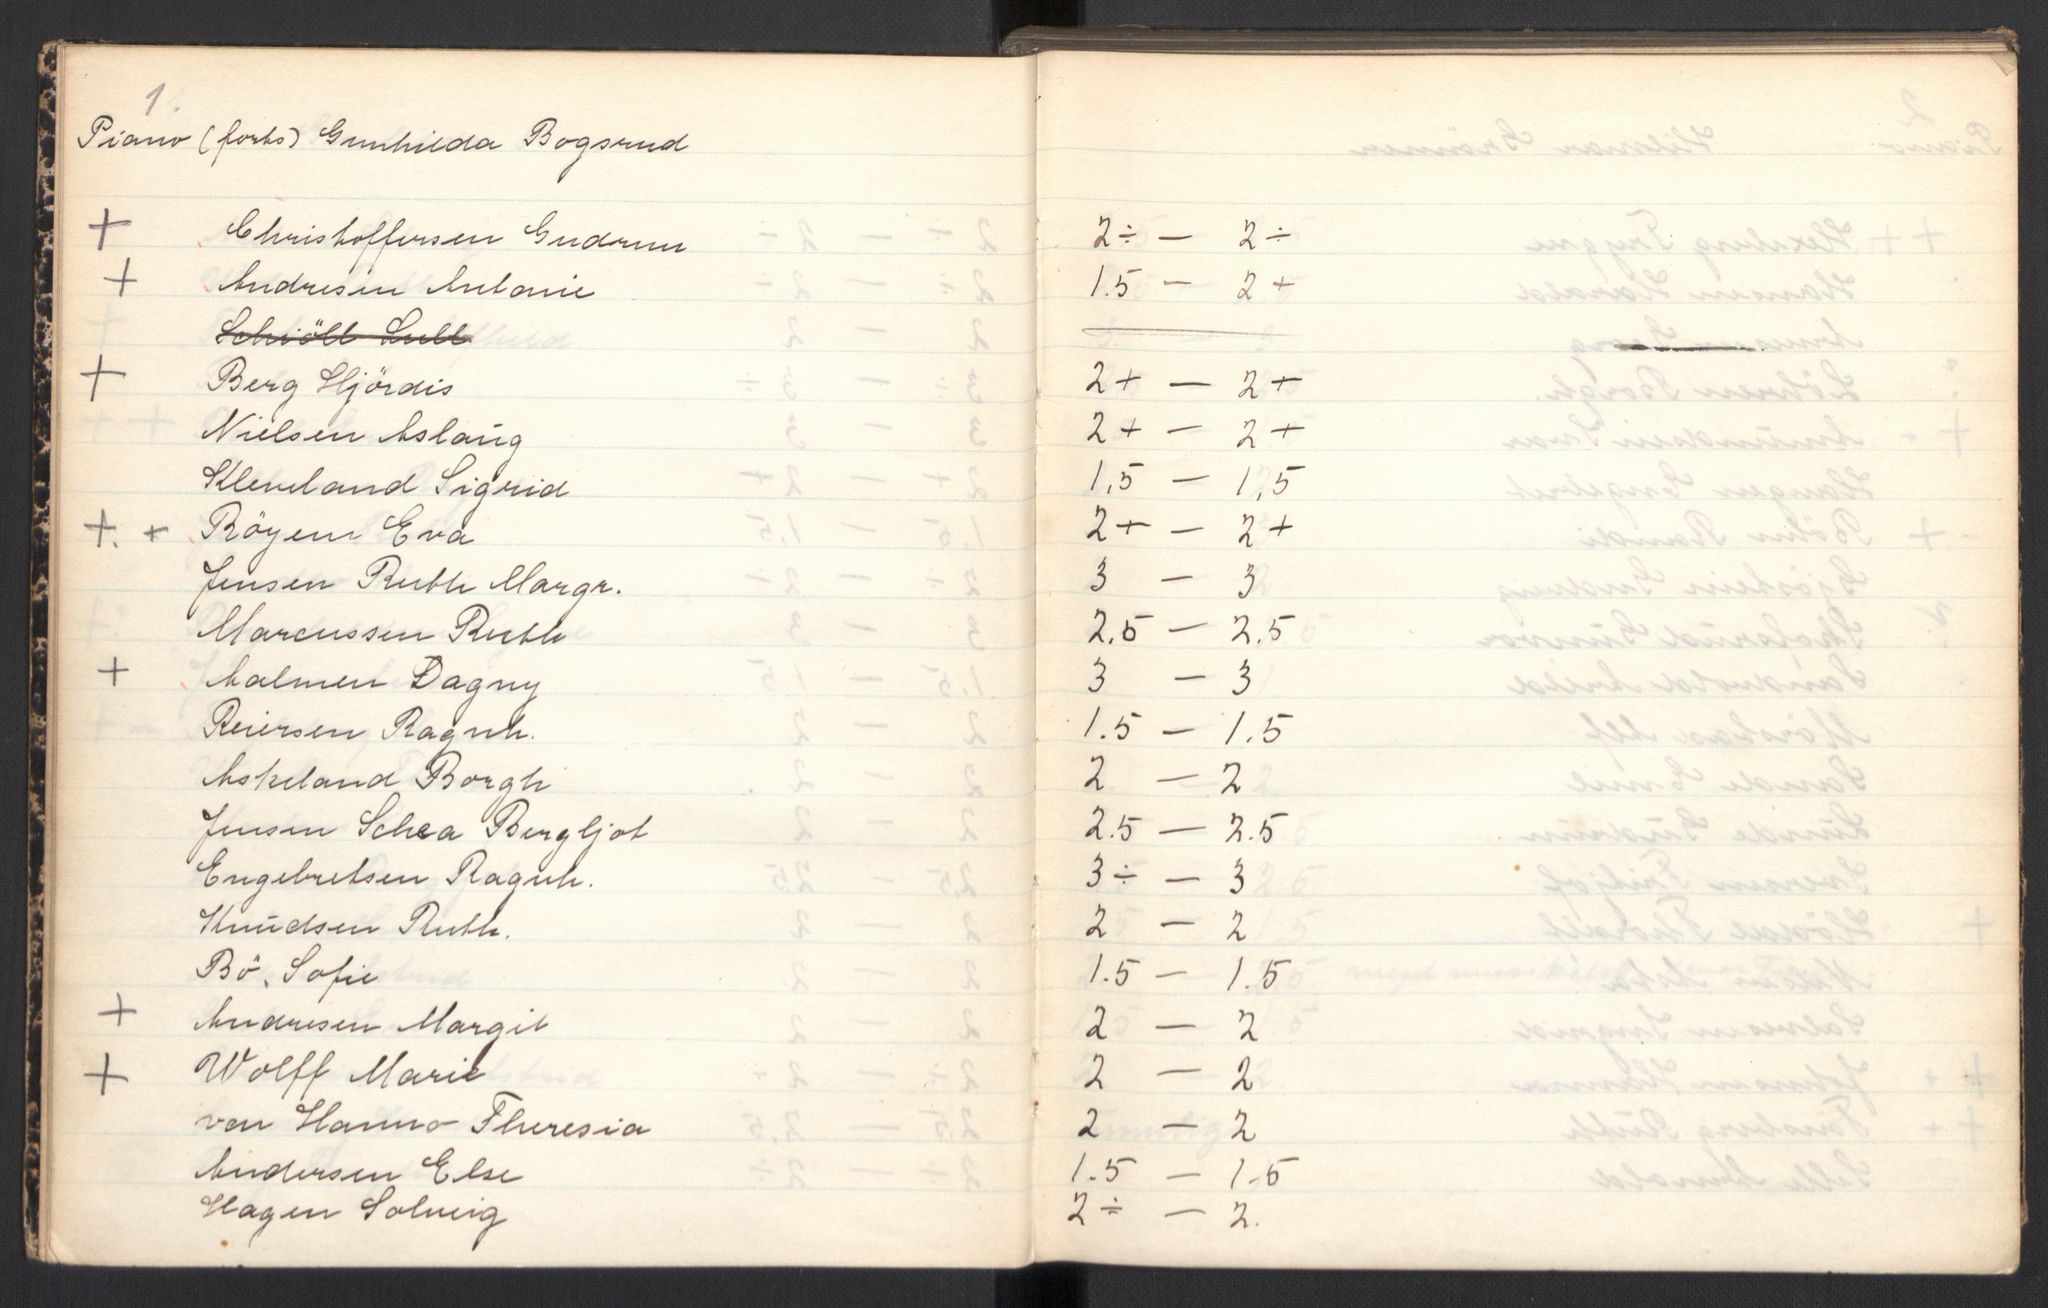 1.
Piano (forts) Gunhilda Bogsrud
+ Christoffersen Gudrun 2÷ — 2÷
+ Andresen Antonie 1.5 — 2+
Schiöll Lull
+ Berg Hjördis 2+ — 2+
Nielsen Aslaug 2+ — 2+
Kleveland Sigrid 1,5 — 1,5
+. + Röyem Eva 2+ — 2+
Jensen Ruth Margr. 3 — 3
Marcussen Ruth 2.5 — 2.5
+ Aalmen Dagny 3 — 3
Reiersen Ragnh. 1.5 — 1.5
Askeland Borgh 2 — 2
Jensen Schea Bergljot 2.5 — 2.5
Engebretsen Ragnh. 3÷ — 3
Knudsen Ruth. 2 — 2
Bö, Sofie 1.5 — 1.5
+ Andresen Margit 2 — 2
+ Wolff Marie 2 — 2
von Hanno Theresia 2 — 2
Andersen Else 1.5 — 1.5
Hagen Solveig 2÷ — 2.